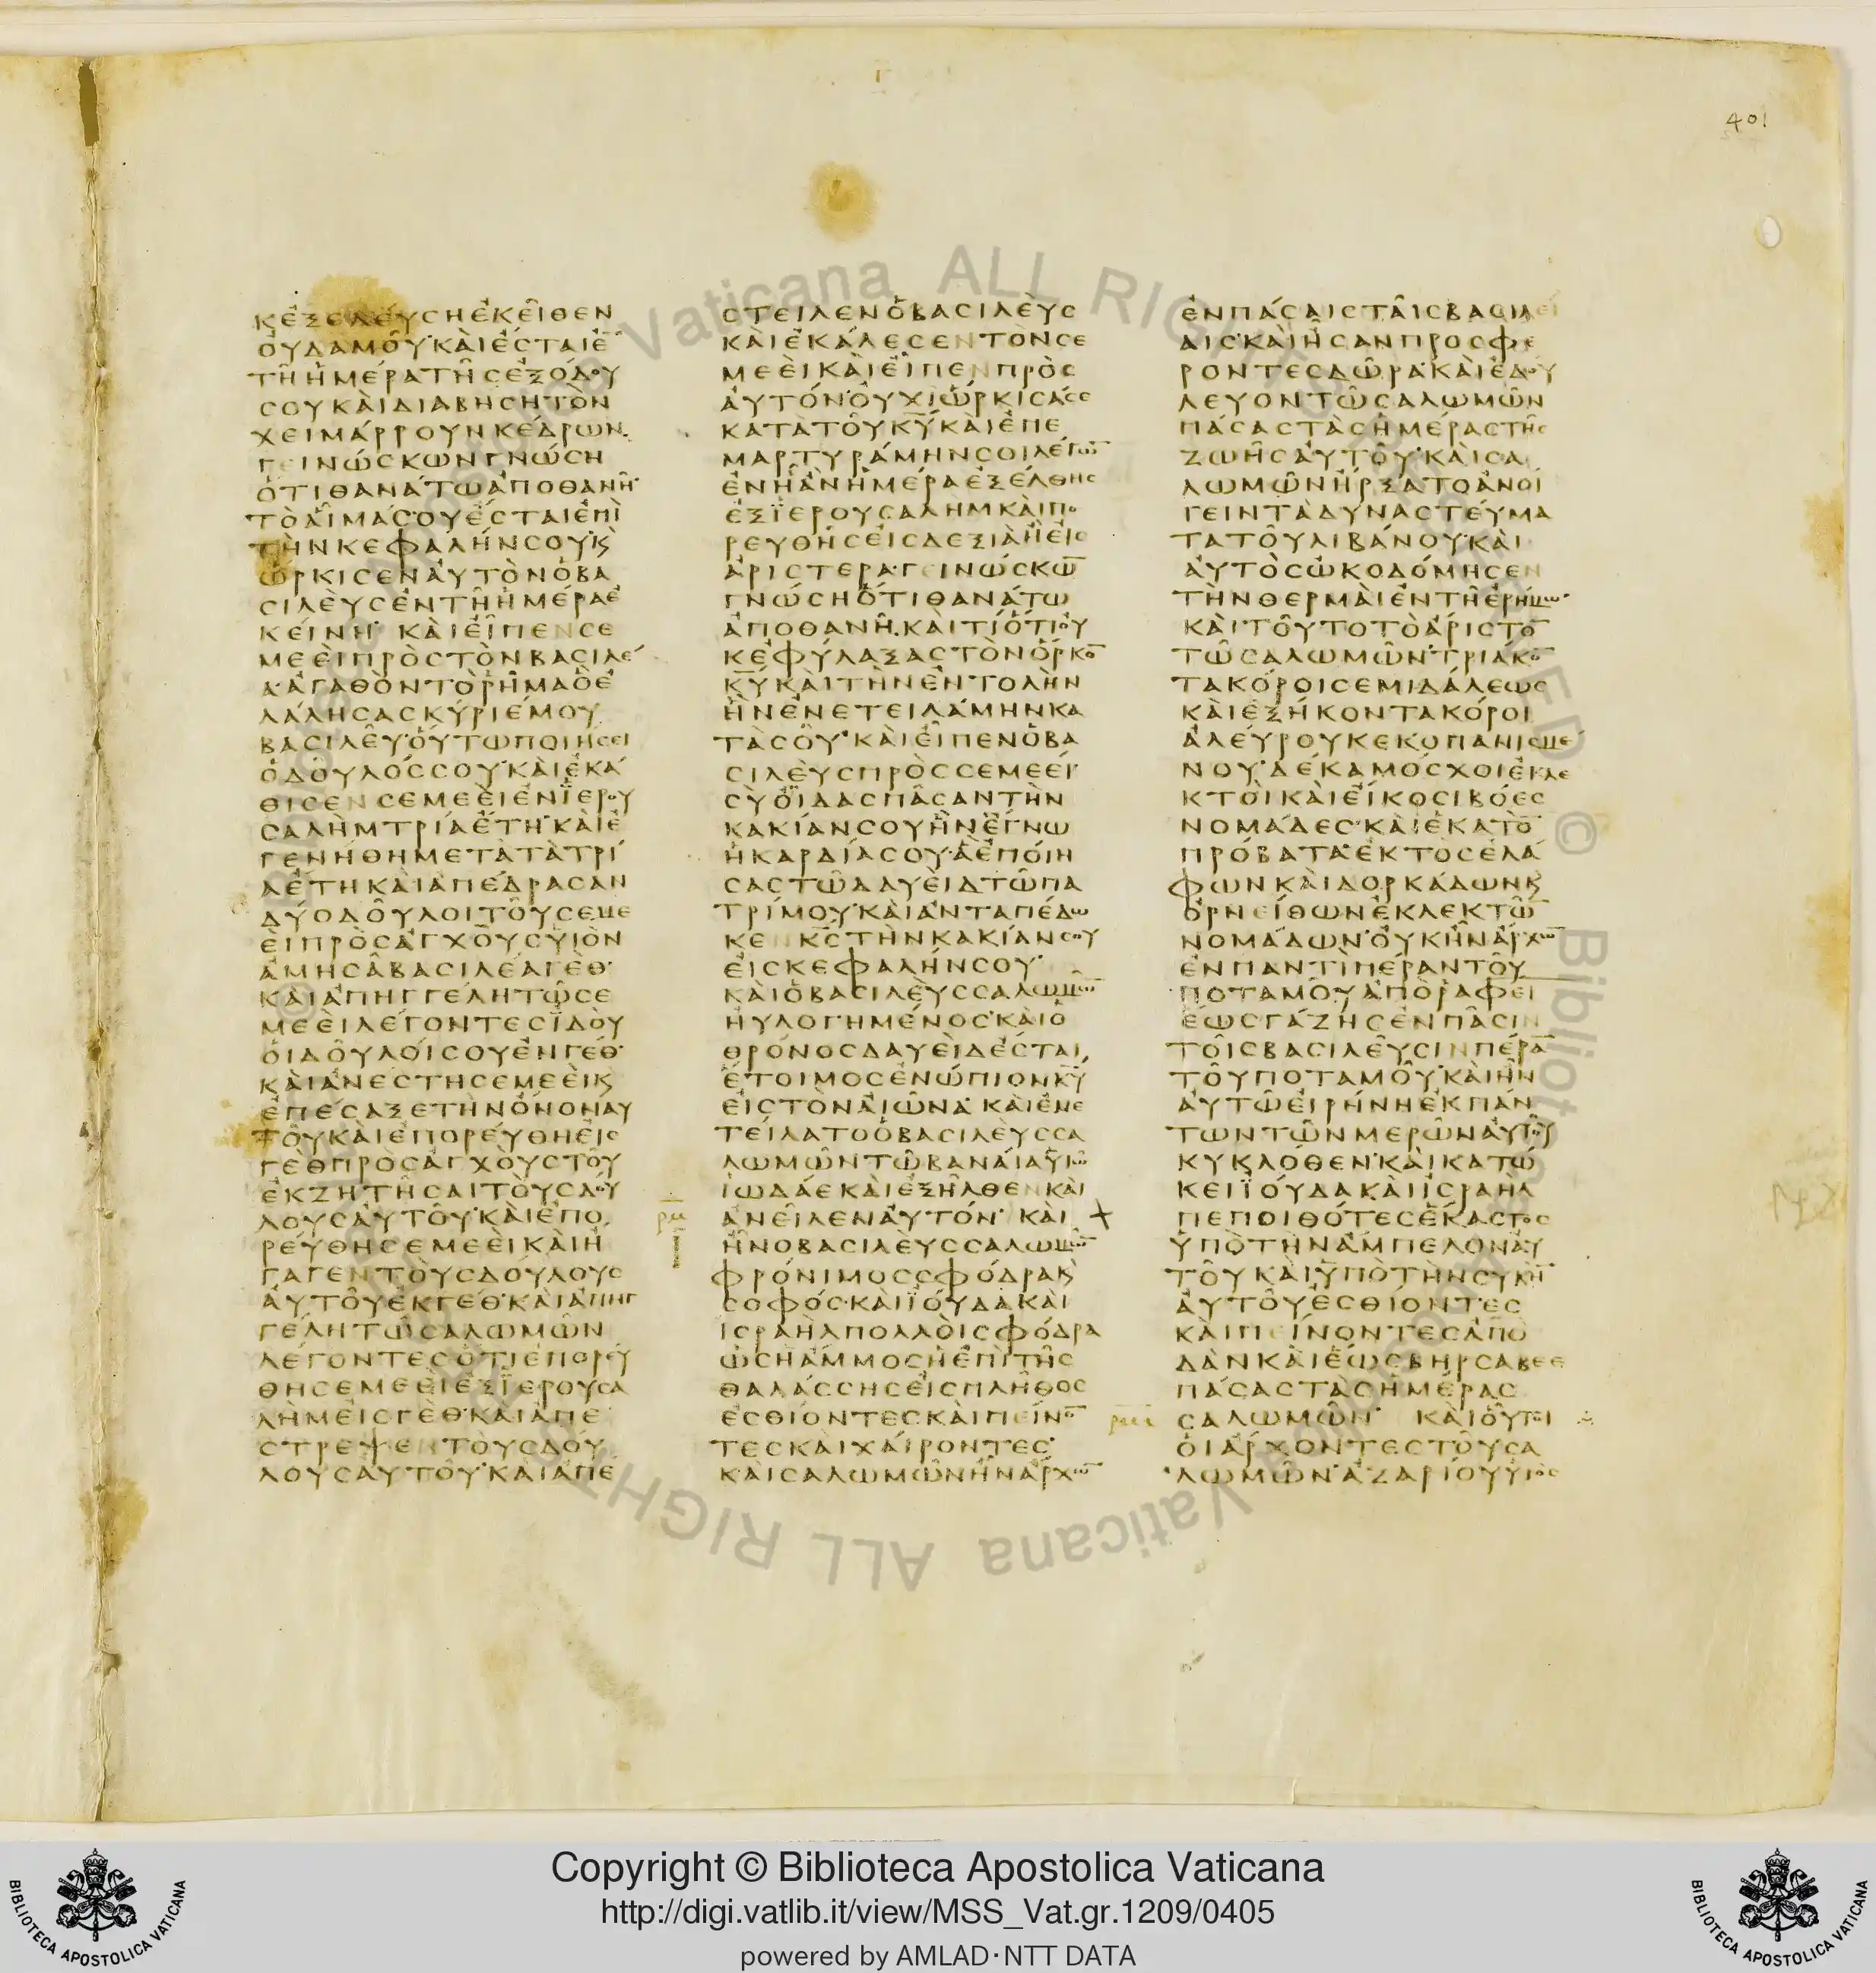 401
ΚΕΞΕΛΕΥΣΗΕΚΕΙΘΕΝ
ΟΥΔΑΜΟΥ·ΚΑΙΕΣΤΑΙΕ̅
ΤΗΗΜΕΡΑΤΗΣΕΞΟΔΟΥ
ΣΟΥΚΑΙΔΙΑΒΗΣΗΤΟΝ
ΧΕΙΜΑΡΡΟΥΝΚΕΔΡΩΝ·
ΓΕΙΝΩΣΚΩΝΓΝΩΣΗ
ΟΤΙΘΑΝΑΤΩΑΠΟΘΑΝΗ·
ΤΟΑΙΜΑΣΟΥΕΣΤΑΙΕΠΙ
ΤΗΝΚΕΦΑΛΗΝΣΟΥ·Κ
ΩΡΚΙΣΕΝΑΥΤΟΝΟΒΑ
ΣΙΛΕΥΣΕΝΤΗΗΜΕΡΑΕ
ΚΕΙΝΗ· ΚΑΙΕΙΠΕΝΣΕ
ΜΕΕΙΠΡΟΣΤΟΝΒΑΣΙΛΕ
Α·ΑΓΑΘΟΝΤΟΡΗΜΑΟΕ
ΛΑΛΗΣΑΣΚΥΡΙΕΜΟΥ
ΒΑΣΙΛΕΥ·ΟΥΤΩΠΟΙΗΣΕΙ
ΟΔΟΥΛΟΣΣΟΥ·ΚΑΙΕΚΑ
ΘΙΣΕΝΣΕΜΕΕΙΕΝΪΕΡΟΥ
ΣΑΛΗΜΤΡΙΑΕΤΗ·ΚΑΙΕ
ΓΕΝΗΘΗΜΕΤΑΤΑΤΡΙ
ΑΕΤΗΚΑΙΑΠΕΔΡΑΣΑΝ
ΔΥΟΔΟΥΛΟΙΤΟΥΣΕΜΕ
ΕΙΠΡΟΣΑΓΧΟΥΣΥΙΟΝ
ΑΜΗΣΑΒΑΣΙΛΕΑΓΕΘ·
ΚΑΙΑΠΗΓΓΕΛΗΤΩΣΕ
ΜΕΕΙΛΕΓΟΝΤΕΣΪΔΟΥ
ΟΙΔΟΥΛΟΙΣΟΥΕΝΓΕΘ·
ΚΑΙΑΝΕΣΤΗΣΕΜΕΕΙΚ
ΕΠΕΣΑΞΕΤΗΝΟΝΟΝΑΥ
ΤΟΥΚΑΙΕΠΟΡΕΥΘΗΕΙΣ
ΓΕΘΠΡΟΣΑΓΧΟΥΣΤΟΥ
ΕΚΖΗΤΗΣΑΙΤΟΥΣΔΟΥ
ΛΟΥΣΑΥΤΟΥ·ΚΑΙΕΠΟ
ΡΕΥΘΗΣΕΜΕΕΙΚΑΙΗ
ΓΑΓΕΝΤΟΥΣΔΟΥΛΟΥΣ
ΑΥΤΟΥΕΚΓΕΘ·ΚΑΙΑΠΗΓ
ΓΕΛΗΤΩΣΑΛΩΜΩΝ
ΛΕΓΟΝΤΕΣΟΤΙΕΠΟΡΕΥ
ΘΗΣΕΜΕΕΙΕΞΪΕΡΟΥΣΑ
ΛΗΜΕΙΣΓΕΘ·ΚΑΙΑΠΕ
ΣΤΡΕΨΕΝΤΟΥΣΔΟΥ
ΛΟΥΣΑΥΤΟΥ·ΚΑΙΑΠΕ
ΣΤΕΙΛΕΝΟΒΑΣΙΛΕΥΣ
ΚΑΙΕΚΑΛΕΣΕΝΤΟΝΣΕ
ΜΕΕΙΚΑΙΕΙΠΕΝΠΡΟΣ
ΑΥΤΟΝ·ΟΥΧΙΩΡΚΙΣΑΣΕ
ΚΑΤΑΤΟΥΚ̅Υ̅ΚΑΙΕΠΕ
ΜΑΡΤΥΡΑΜΗΝΣΟΙΛΕΓΩ̅
ΕΝΗΑΝΗΜΕΡΑΕΞΕΛΘΗΣ
ΕΞΪΕΡΟΥΣΑΛΗΜΚΑΙΠΟ
ΡΕΥΘΗΣΕΙΣΔΕΞΙΑΗΕΙΣ
ΑΡΙΣΤΕΡΑ·ΓΕΙΝΩΣΚΩ̅
ΓΝΩΣΗΟΤΙΘΑΝΑΤΩ
ΑΠΟΘΑΝΗ·ΚΑΙΤΙΟΤΙΟΥ
ΚΕΦΥΛΑΞΑΣΤΟΝΟΡΚΟ̅
Κ̅Υ̅ΚΑΙΤΗΝΕΝΤΟΛΗΝ
ΗΝΕΝΕΤΕΙΛΑΜΗΝΚΑ
ΤΑΣΟΥ·ΚΑΙΕΙΠΕΝΟΒΑ
ΣΙΛΕΥΣΠΡΟΣΣΕΜΕΕΙ·
ΣΥΟΙΔΑΣΠΑΣΑΝΤΗΝ
ΚΑΚΙΑΝΣΟΥΗΝΕΓΝΩ
ΗΚΑΡΔΙΑΣΟΥ·ΑΕΠΟΙΗ
ΣΑΣΤΩΔΑΥΕΙΔΤΩΠΑ
ΤΡΙΜΟΥ·ΚΑΙΑΝΤΑΠΕΔΩ
ΚΕΝΚ̅Σ̅ΤΗΝΚΑΚΙΑΝΣΟΥ
ΕΙΣΚΕΦΑΛΗΝΣΟΥ·
ΚΑΙΟΒΑΣΙΛΕΥΣΣΑΛΩΜΩ̅
ΗΥΛΟΓΗΜΕΝΟΣ·ΚΑΙΟ
ΘΡΟΝΟΣΔΑΥΕΙΔΕΣΤΑΙ
ΕΤΟΙΜΟΣΕΝΩΠΙΟΝΚ̅Υ̅
ΕΙΣΤΟΝΑΙΩΝΑ· ΚΑΙΕΝΕ
ΤΕΙΛΑΤΟΟΒΑΣΙΛΕΥΣΣΑ
ΛΩΜΩΝΤΩΒΑΝΑΙΑΥΙΩ
ΙΩΔΑΕΚΑΙΕΞΗΛΘΕΝΚΑΙ
ΑΝΕΙΛΕΝΑΥΤΟΝ· ΚΑΙ
ΗΝΟΒΑΣΙΛΕΥΣΣΑΛΩΜΩ̅
ΦΡΟΝΙΜΟΣΣΦΟΔΡΑΚ
ΣΟΦΟΣ·ΚΑΙΪΟΥΔΑΚΑΙ
ΙΣΡΑΗΛΠΟΛΛΟΙΣΦΟΔΡΑ
ΩΣΗΑΜΜΟΣΗΕΠΙΤΗΣ
ΘΑΛΑΣΣΗΣΕΙΣΠΛΗΘΟΣ
ΕΣΘΙΟΝΤΕΣΚΑΙΠΕΙΝΟ̅
ΤΕΣΚΑΙΧΑΙΡΟΝΤΕΣ·
ΚΑΙΣΑΛΩΜΩΝΗΝΑΡΧΩ̅
ΕΝΠΑΣΑΙΣΤΑΙΣΒΑΣΙΛΕΙ
ΑΙΣ·ΚΑΙΗΣΑΝΠΡΟΣΦΕ
ΡΟΝΤΕΣΔΩΡΑ·ΚΑΙΕΔΟΥ
ΛΕΥΟΝΤΩΣΑΛΩΜΩΝ
ΠΑΣΑΣΤΑΣΗΜΕΡΑΣΤΗΣ
ΖΩΗΣΑΥΤΟΥ·ΚΑΙΣΑ
ΛΩΜΩΝΗΡΞΑΤΟΑΝΟΙ
ΓΕΙΝΤΑΔΥΝΑΣΤΕΥΜΑ
ΤΑΤΟΥΛΙΒΑΝΟΥ·ΚΑΙ
ΑΥΤΟΣΩΚΟΔΟΜΗΣΕΝ
ΤΗΝΘΕΡΜΑΙΕΝΤΗΕΡΗΜΩ·
ΚΑΙΤΟΥΤΟΤΟΑΡΙΣΤΟ̅
ΤΩΣΑΛΩΜΩΝ·ΤΡΙΑΚΟ̅
ΤΑΚΟΡΟΙΣΕΜΙΔΑΛΕΩΣ
ΚΑΙΕΞΗΚΟΝΤΑΚΟΡΟΙ
ΑΛΕΥΡΟΥΚΕΚΟΠΑΝΙΣΜΕ
ΝΟΥ·ΔΕΚΑΜΟΣΧΟΙΕΚΛΕ
ΚΤΟΙΚΑΙΕΙΚΟΣΙΒΟΕΣ
ΝΟΜΑΔΕΣ·ΚΑΙΕΚΑΤΟ̅
ΠΡΟΒΑΤΑ·ΕΚΤΟΣΕΛΑ
ΦΩΝΚΑΙΔΟΡΚΑΔΩΝΚ
ΟΡΝΕΙΘΩΝΕΚΛΕΚΤΩ̅
ΝΟΜΑΔΩΝ·ΟΥΚΗΝΑΡΧΩ̅
ΕΝΠΑΝΤΙΠΕΡΑΝΤΟΥ
ΠΟΤΑΜΟΥΑΠΟΡΑΦΕΙ
ΕΩΣΓΑΖΗΣΕΝΠΑΣΙΝ
ΤΟΙΣΒΑΣΙΛΕΥΣΙΝΠΕΡΑ̅
ΤΟΥΠΟΤΑΜΟΥ·ΚΑΙΗΝ
ΑΥΤΩΕΙΡΗΝΗΕΚΠΑΝ
ΤΩΝΤΩΝΜΕΡΩΝΑΥΤΟΥ
ΚΥΚΛΟΘΕΝ·ΚΑΙΚΑΤΩ
ΚΕΙΪΟΥΔΑΚΑΙΙΣΡΑΗΛ
ΠΕΠΟΙΘΟΤΕΣΕΚΑΣΤΟΣ
ΥΠΟΤΗΝΑΜΠΕΛΟΝΑΥ
ΤΟΥΚΑΙΥΠΟΤΗΝΣΥΚΗ̅
ΑΥΤΟΥΕΣΘΙΟΝΤΕΣ
ΚΑΙΠΕΙΝΟΝΤΕΣΑΠΟ
ΔΑΝΚΑΙΕΩΣΒΗΡΣΑΒΕΕ
ΠΑΣΑΣΤΑΣΗΜΕΡΑΣ
ΣΑΛΩΜΩΝ· ΚΑΙΟΥΤΟΙ
ΟΙΑΡΧΟΝΤΕΣΤΟΥΣΑ
ΛΩΜΩΝ·ΑΖΑΡΙΟΥΥΙΟΣ
Vaticana ALL RIGHTS RESERVED © Biblioteca Apostolica Vaticana ALL RIGHTS
Copyright © Biblioteca Apostolica Vaticana
http://digi.vatlib.it/view/MSS_Vat.gr.1209/0405
powered by AMLAD·NTT DATA
BIBLIOTECA APOSTOLICA VATICANA
BIBLIOTECA APOSTOLICA VATICANA